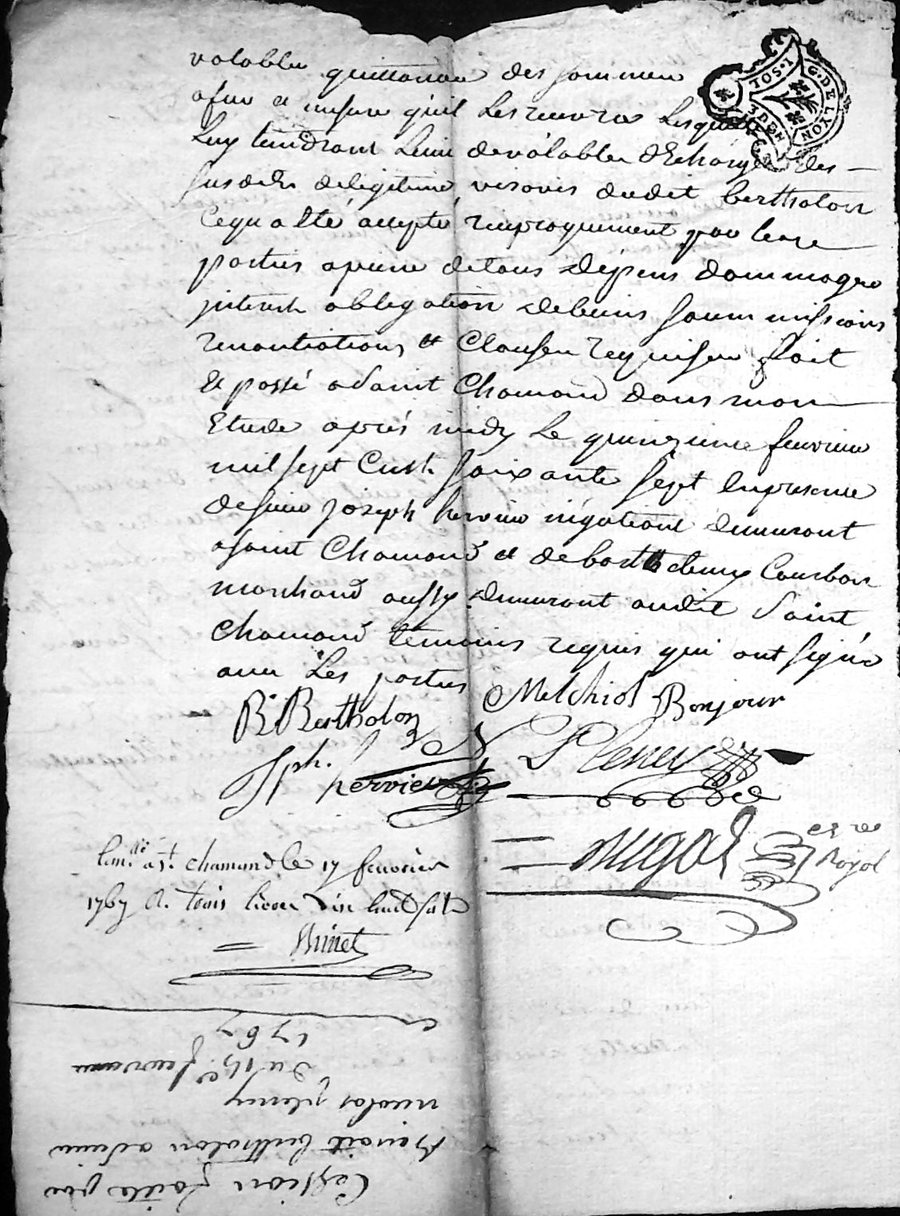 valables quittances des sommes
afur a mesure qu'il les recevra lesquelles
luy tiendront lieu de valables décharges des
susdits de légitime visavis dudit bertholon
Ce qu'a été accepté reciproquement par les
parties a peine de tous dépens dommages
interets obligation de biens soummissions
renontiations et Clauses requises fait
et passé a saint Chamond dans mon
Etude après midy le quinzieme fevrier
mil sept Cent soixante sept en presence
de sieur joseph hervier négotiant demeurant
a saint Chamond et de barthelemy Courbon
marchand aussy demeurant audit saint
Chamond témoins requis qui ont signé
avec les parties
B. Bertholon Melchiol Bonjour
Jph. hervier Pleney
royal
à St. chamond le 17 fevrier
1767 R. trois livres dix huit sols
Binet
G. DE LYON
Cession faite par
Benoit bertholon a sieur
nicolas pleney
du 15e fevrier
1767